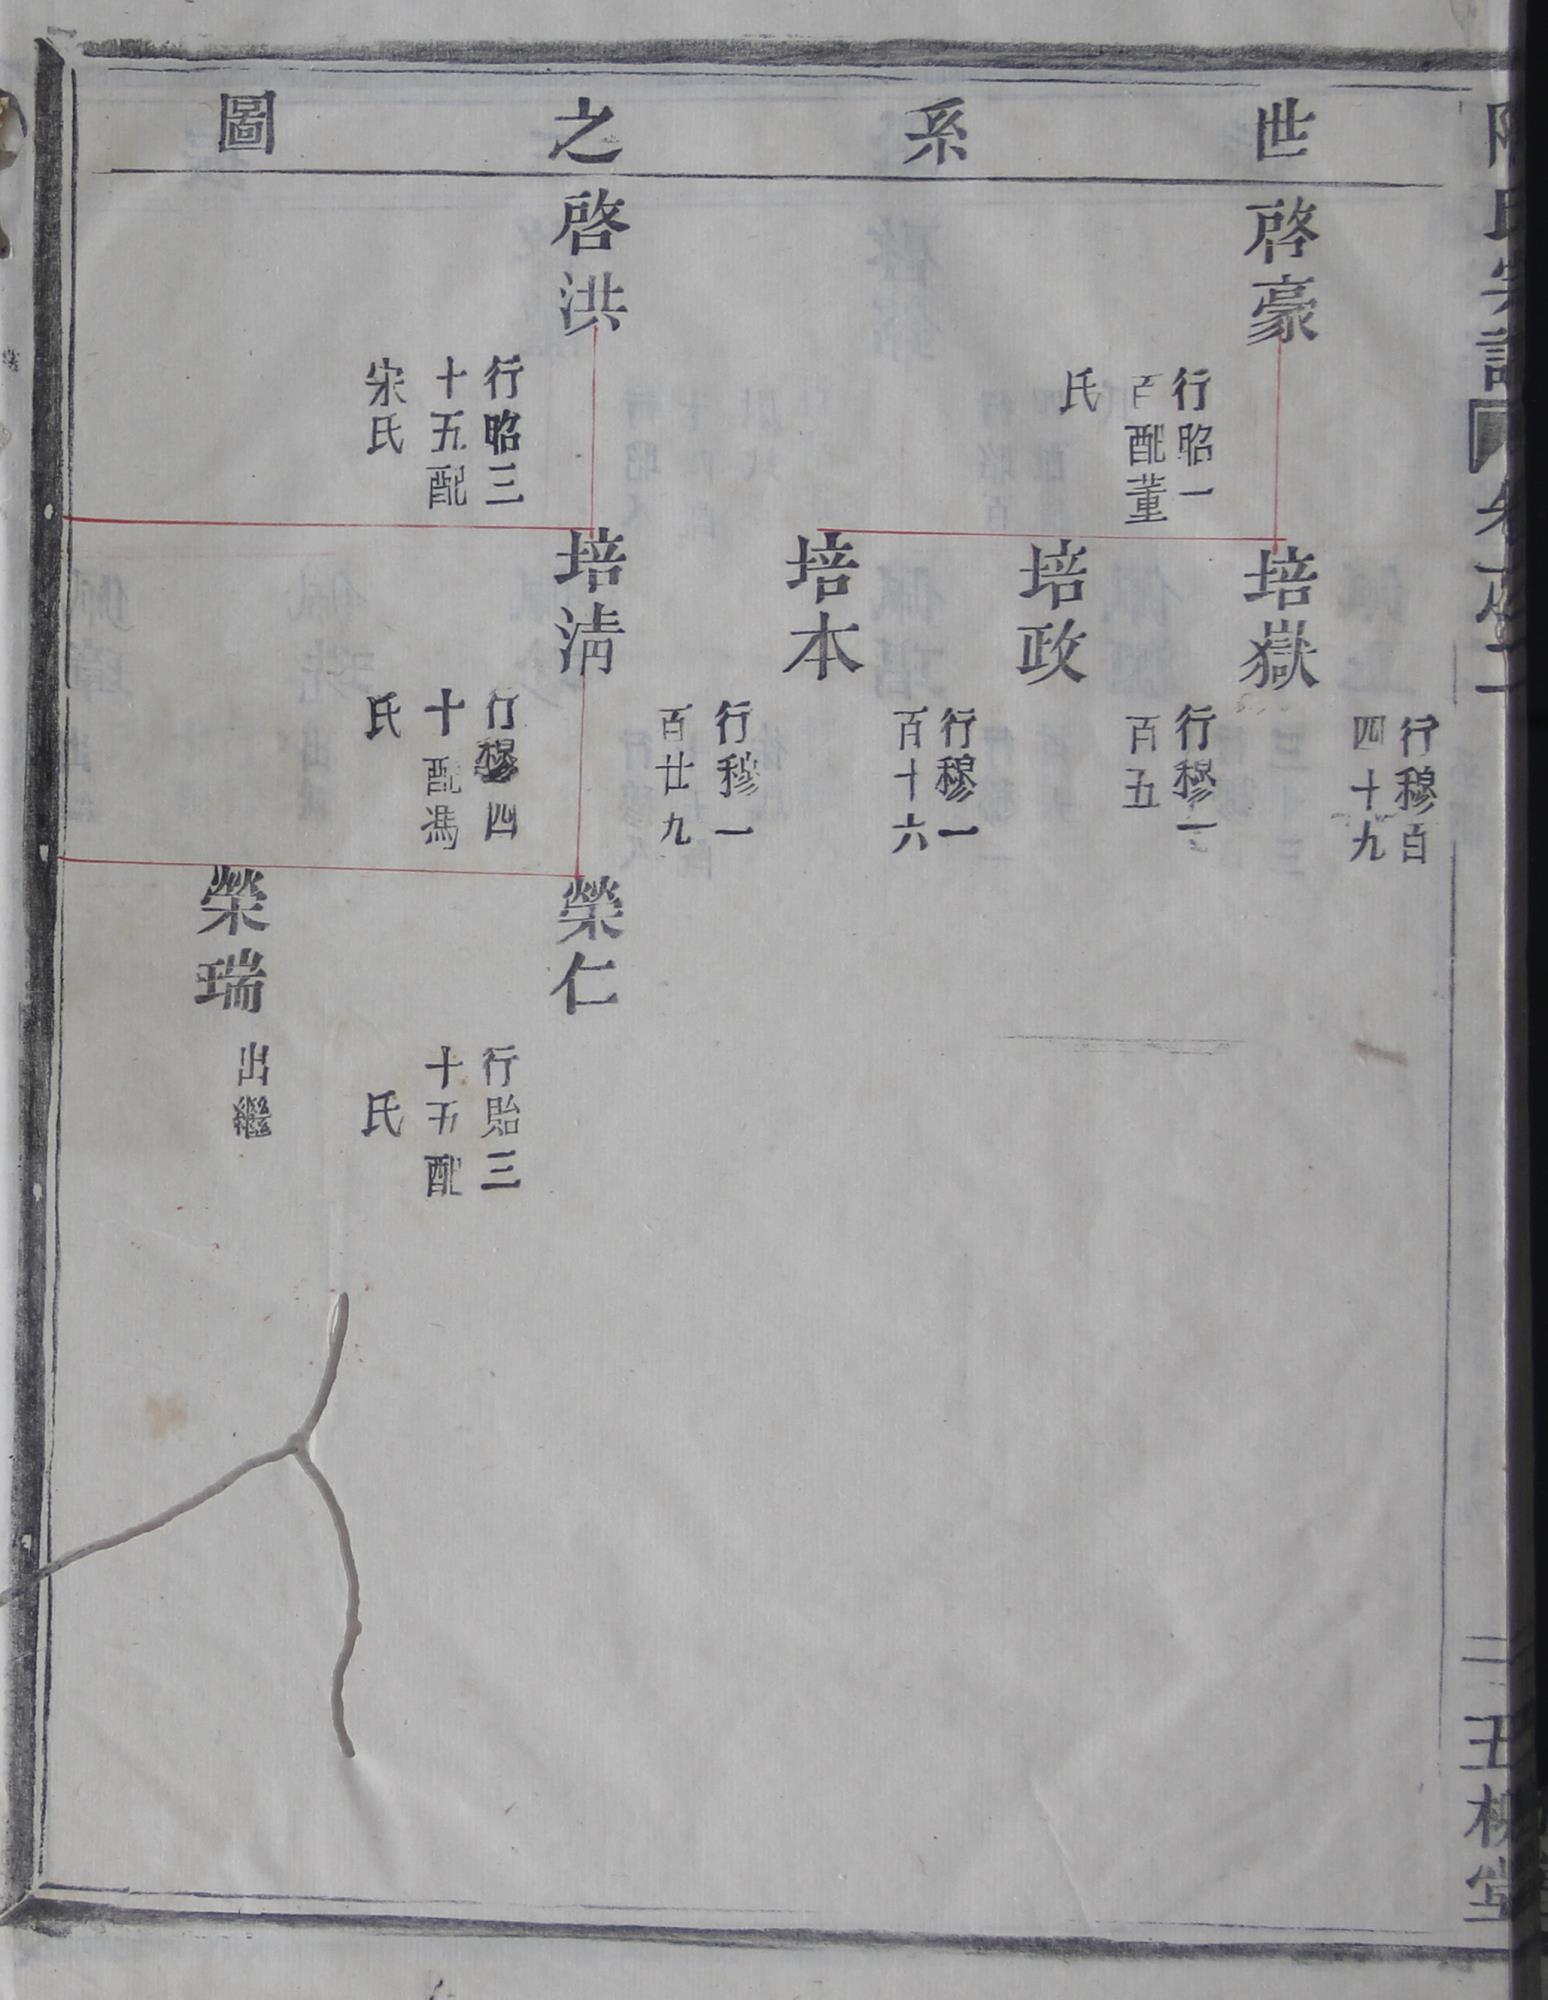 世系之圖
啓豪
行昭一
百配董
氏
啓洪
行昭三
十五配
宋氏
培嶽
培政
行穆一
百五
培本
行穆一
百十六
行穆百
四十九
行穆一
百廿九
培淸
行穆四
十配馮
氏
榮仁
行貽三
十五配
氏
榮瑞
出繼
氏宗譜 卷
五柳堂